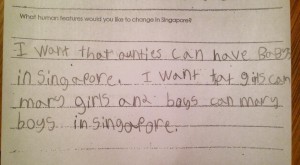 What human features would you like to change in Singapore?
I want that aunties can have Babys
in Singapore. I want tat girls can
mary girls and boys can mary
boys in singapore.